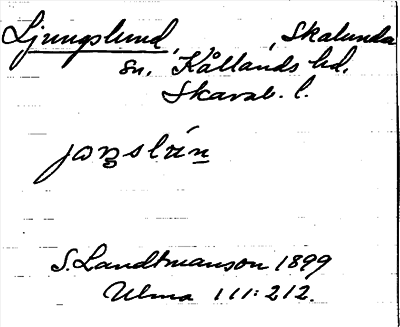 Ljungslund, , Skalunda
sn. Kållands hd.
Skarab. l.
S. Landtmanson 1899
Ulma 111:212.